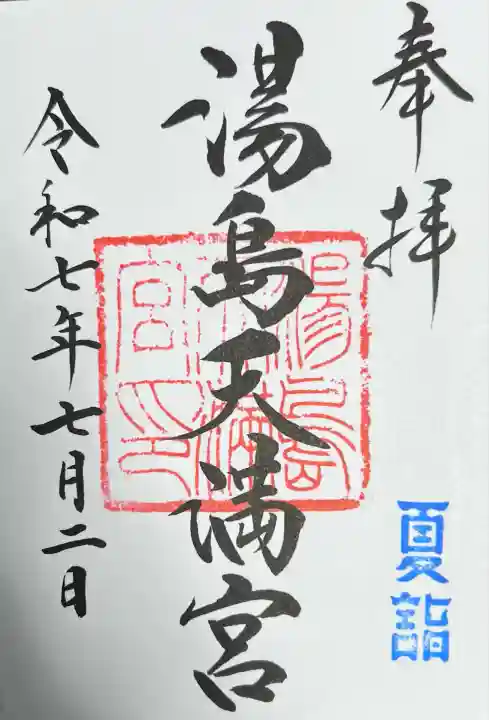 奉拝
夏詣
湯島天満宮
湯島
天満
宮印
令和七年七月二日